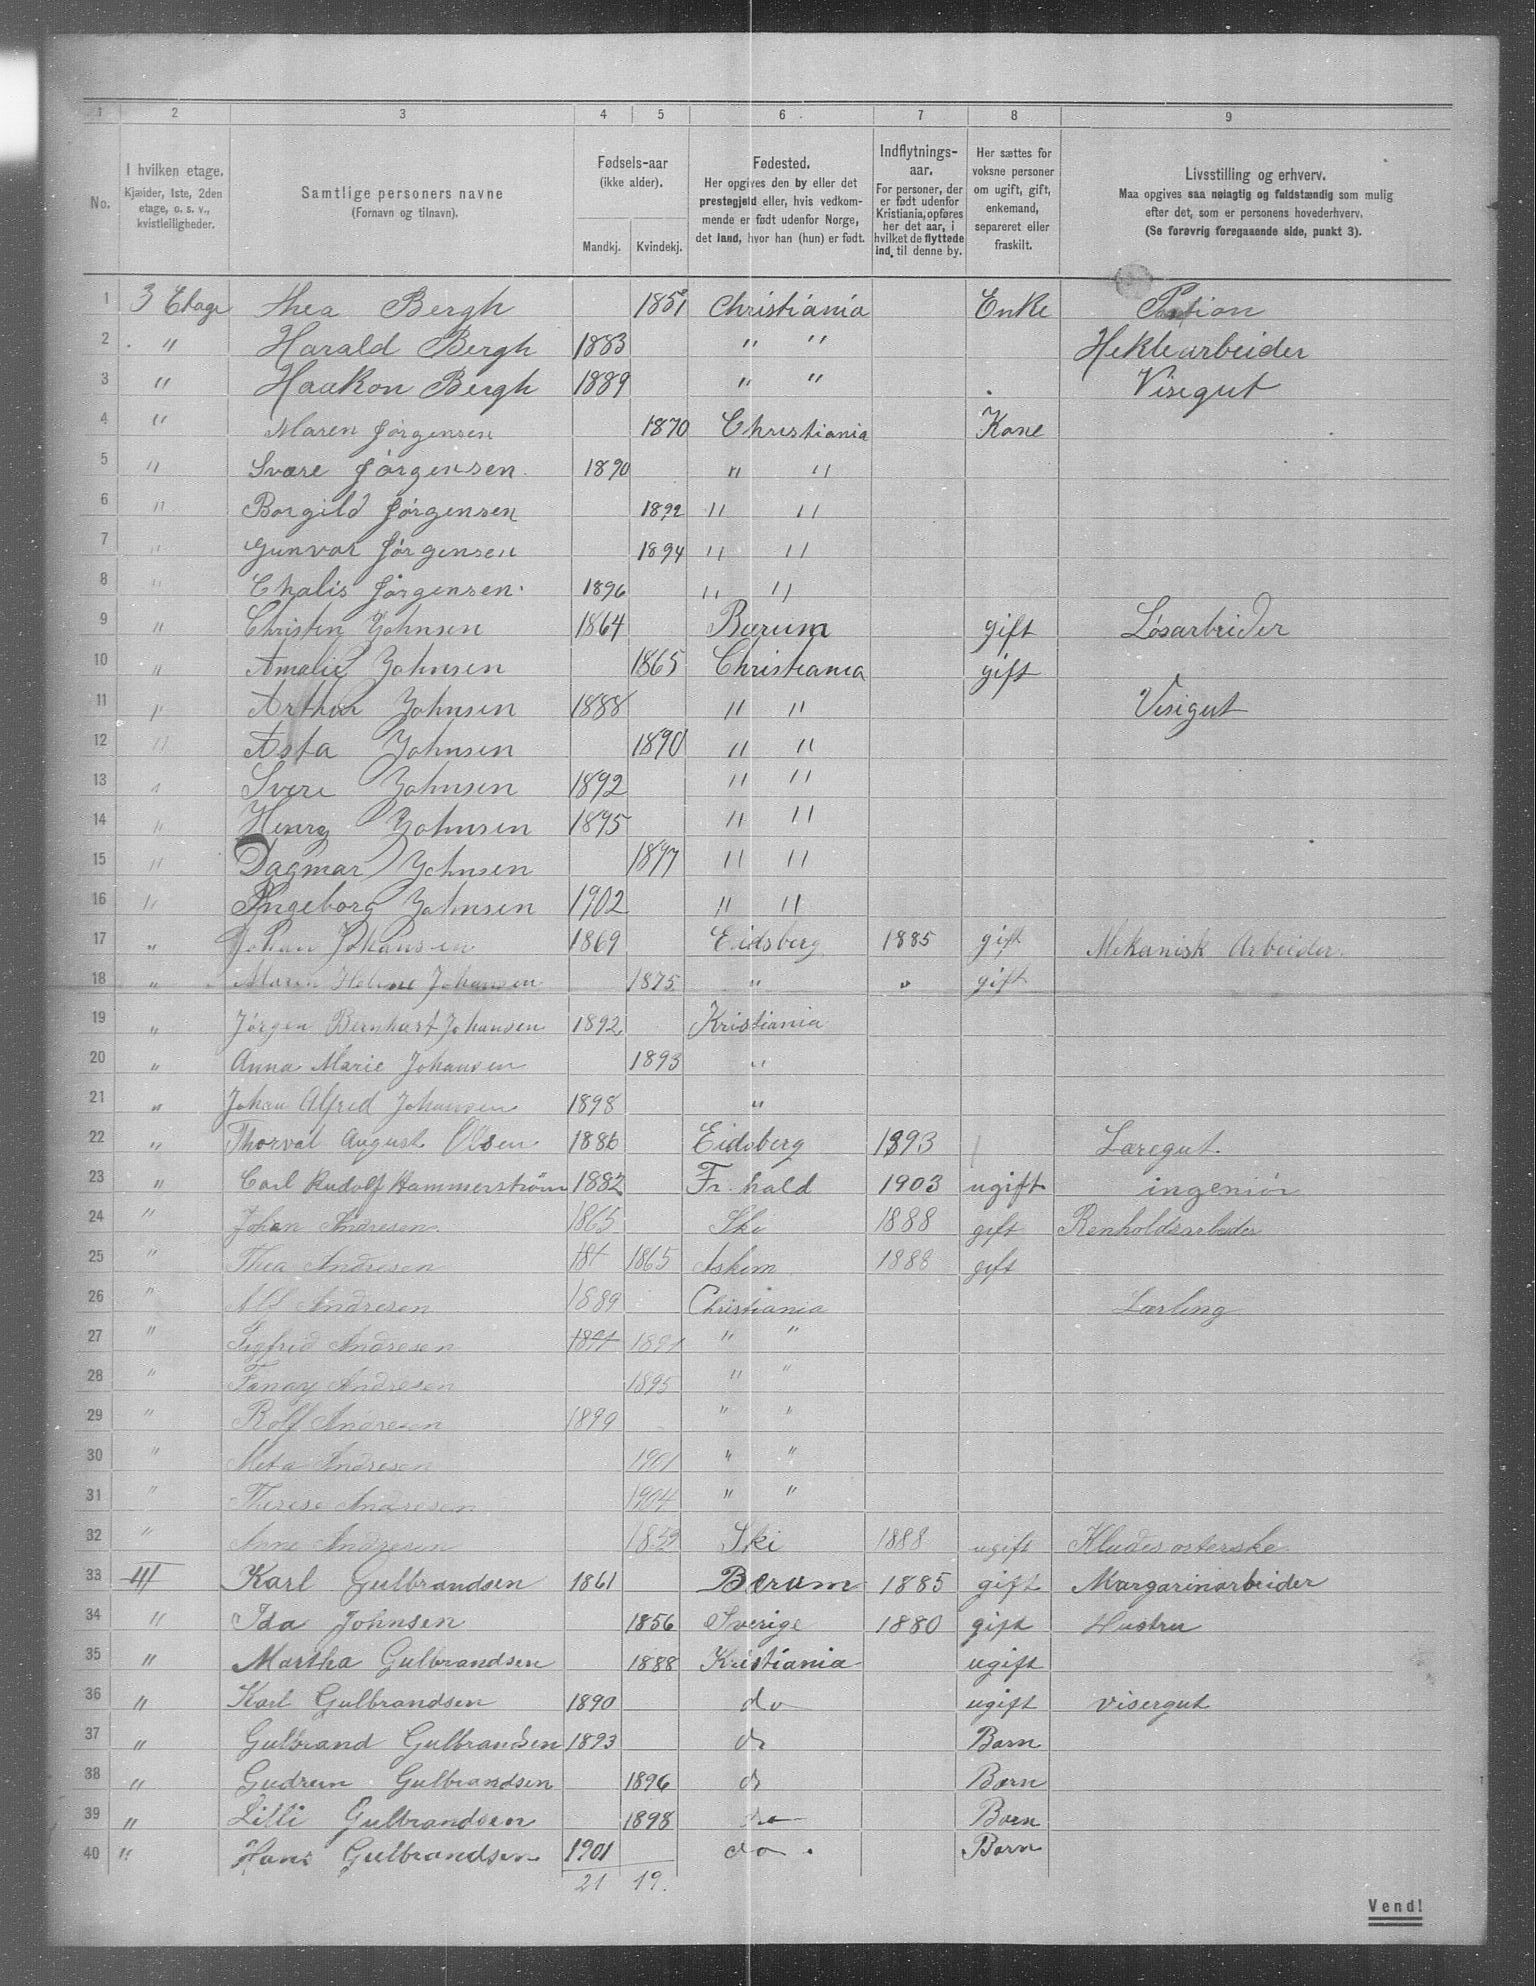 1 2 3 4 5 6 7 8 9
No. I hvilken etage. Kjælder, 1ste, 2den etage, o. s. v., kvistleiligheder. Samtlige personers navne (Fornavn og tilnavn). Fødsels-aar (ikke alder). Mandkj. Kvindekj. Fødested. Her opgives den by eller det prestegjeld eller, hvis vedkommende er født udenfor Norge, det land, hvor han (hun) er født. Indflytnings-aar. For personer, der er født udenfor Kristiania, opføres her det aar, i hvilket de flyttede ind til denne by. Her sættes for voksne personer om ugift, gift, enkemand, separeret eller fraskilt. Livsstilling og erhverv. Maa opgives saa nøiagtig og fuldstændig som mulig efter det, som er personens hovederhverv. (Se forøvrig foregaaende side, punkt 3).
1 3 Etage Thea Bergh 1851 Christiania Enke
2 " Harald Bergh 1883 " " Heklearbeider
3 " Haakon Bergh 1889 " " Visegut
4 " Maren Jørgensen 1870 Christiania Kone
5 " Svære Jørgensen. 1890 " "
6 " Borgild Jørgensen 1892 " "
7 " Gunvor Jørgensen 1894 " "
8 " Chalis Jørgensen. 1896 " "
9 " Christin Johnsen 1864 Bærum gift Løsarbeider
10 " Amalie Johnsen 1865 Christiania gift
11 " Arthur Johnsen 1888 " " Visigut
12 " Asta Johnsen 1890 " "
13 " Svere Johnsen 1892 " "
14 " Henry Johnsen 1895 " "
15 " Dagmar Johnsen 1897 " "
16 " Ingeborg Johnsen 1902 " "
17 " Johan Johansen 1869 Eidsberg 1885 gift Mekanisk Arbeider.
18 " Maren Heline Johansen 1875 " " gift
19 " Jørgen Bernhart Johansen 1892 Kristiania
20 " Anna Marie Johansen 1893 "
21 " Johan Alfred Johansen 1898 "
22 " Thorval August Olsen 1886 Eidsberg 1893 Læregut.
23 " Carl Rudolf Hammerström 1882 Fr. hald 1903 ugift ingeniør
24 " Johan Andresen 1865 Ski 1888 gift Renholdsarbeider
25 " Thea Andresen 1865 Askim 1888 gift
26 " Alf Andresen 1889 Christiania Lærling
27 " Sigfrid Andresen 1891 1891 " "
28 " Fanny Andresen 1895 " "
29 " Rolf Andresen 1899 " "
30 " Meta Andresen 1901 " "
31 " Therese Andresen 1904 " "
32 " Anne Andresen Ski 1888 ugift Kludesosterske
33 4 Karl Gulbrandsen 1861 Bærum 1885 gift Margarinarbeider
34 " Ida Johnsen 1856 Sverige 1880 gift Hustru
35 " Martha Gulbrandsen 1888 Kristiania ugift
36 " Karl Gulbrandsen 1890 do ugift visergut
37 " Gulbrand Gulbrandsen 1893 do Barn
38 " Gudrun Gulbrandsen 1896 do Barn
39 " Lilli Gulbrandsen 1898 do Barn
40 " Hans Gulbrandsen 1901 do. Barn
21 19.
Vend!